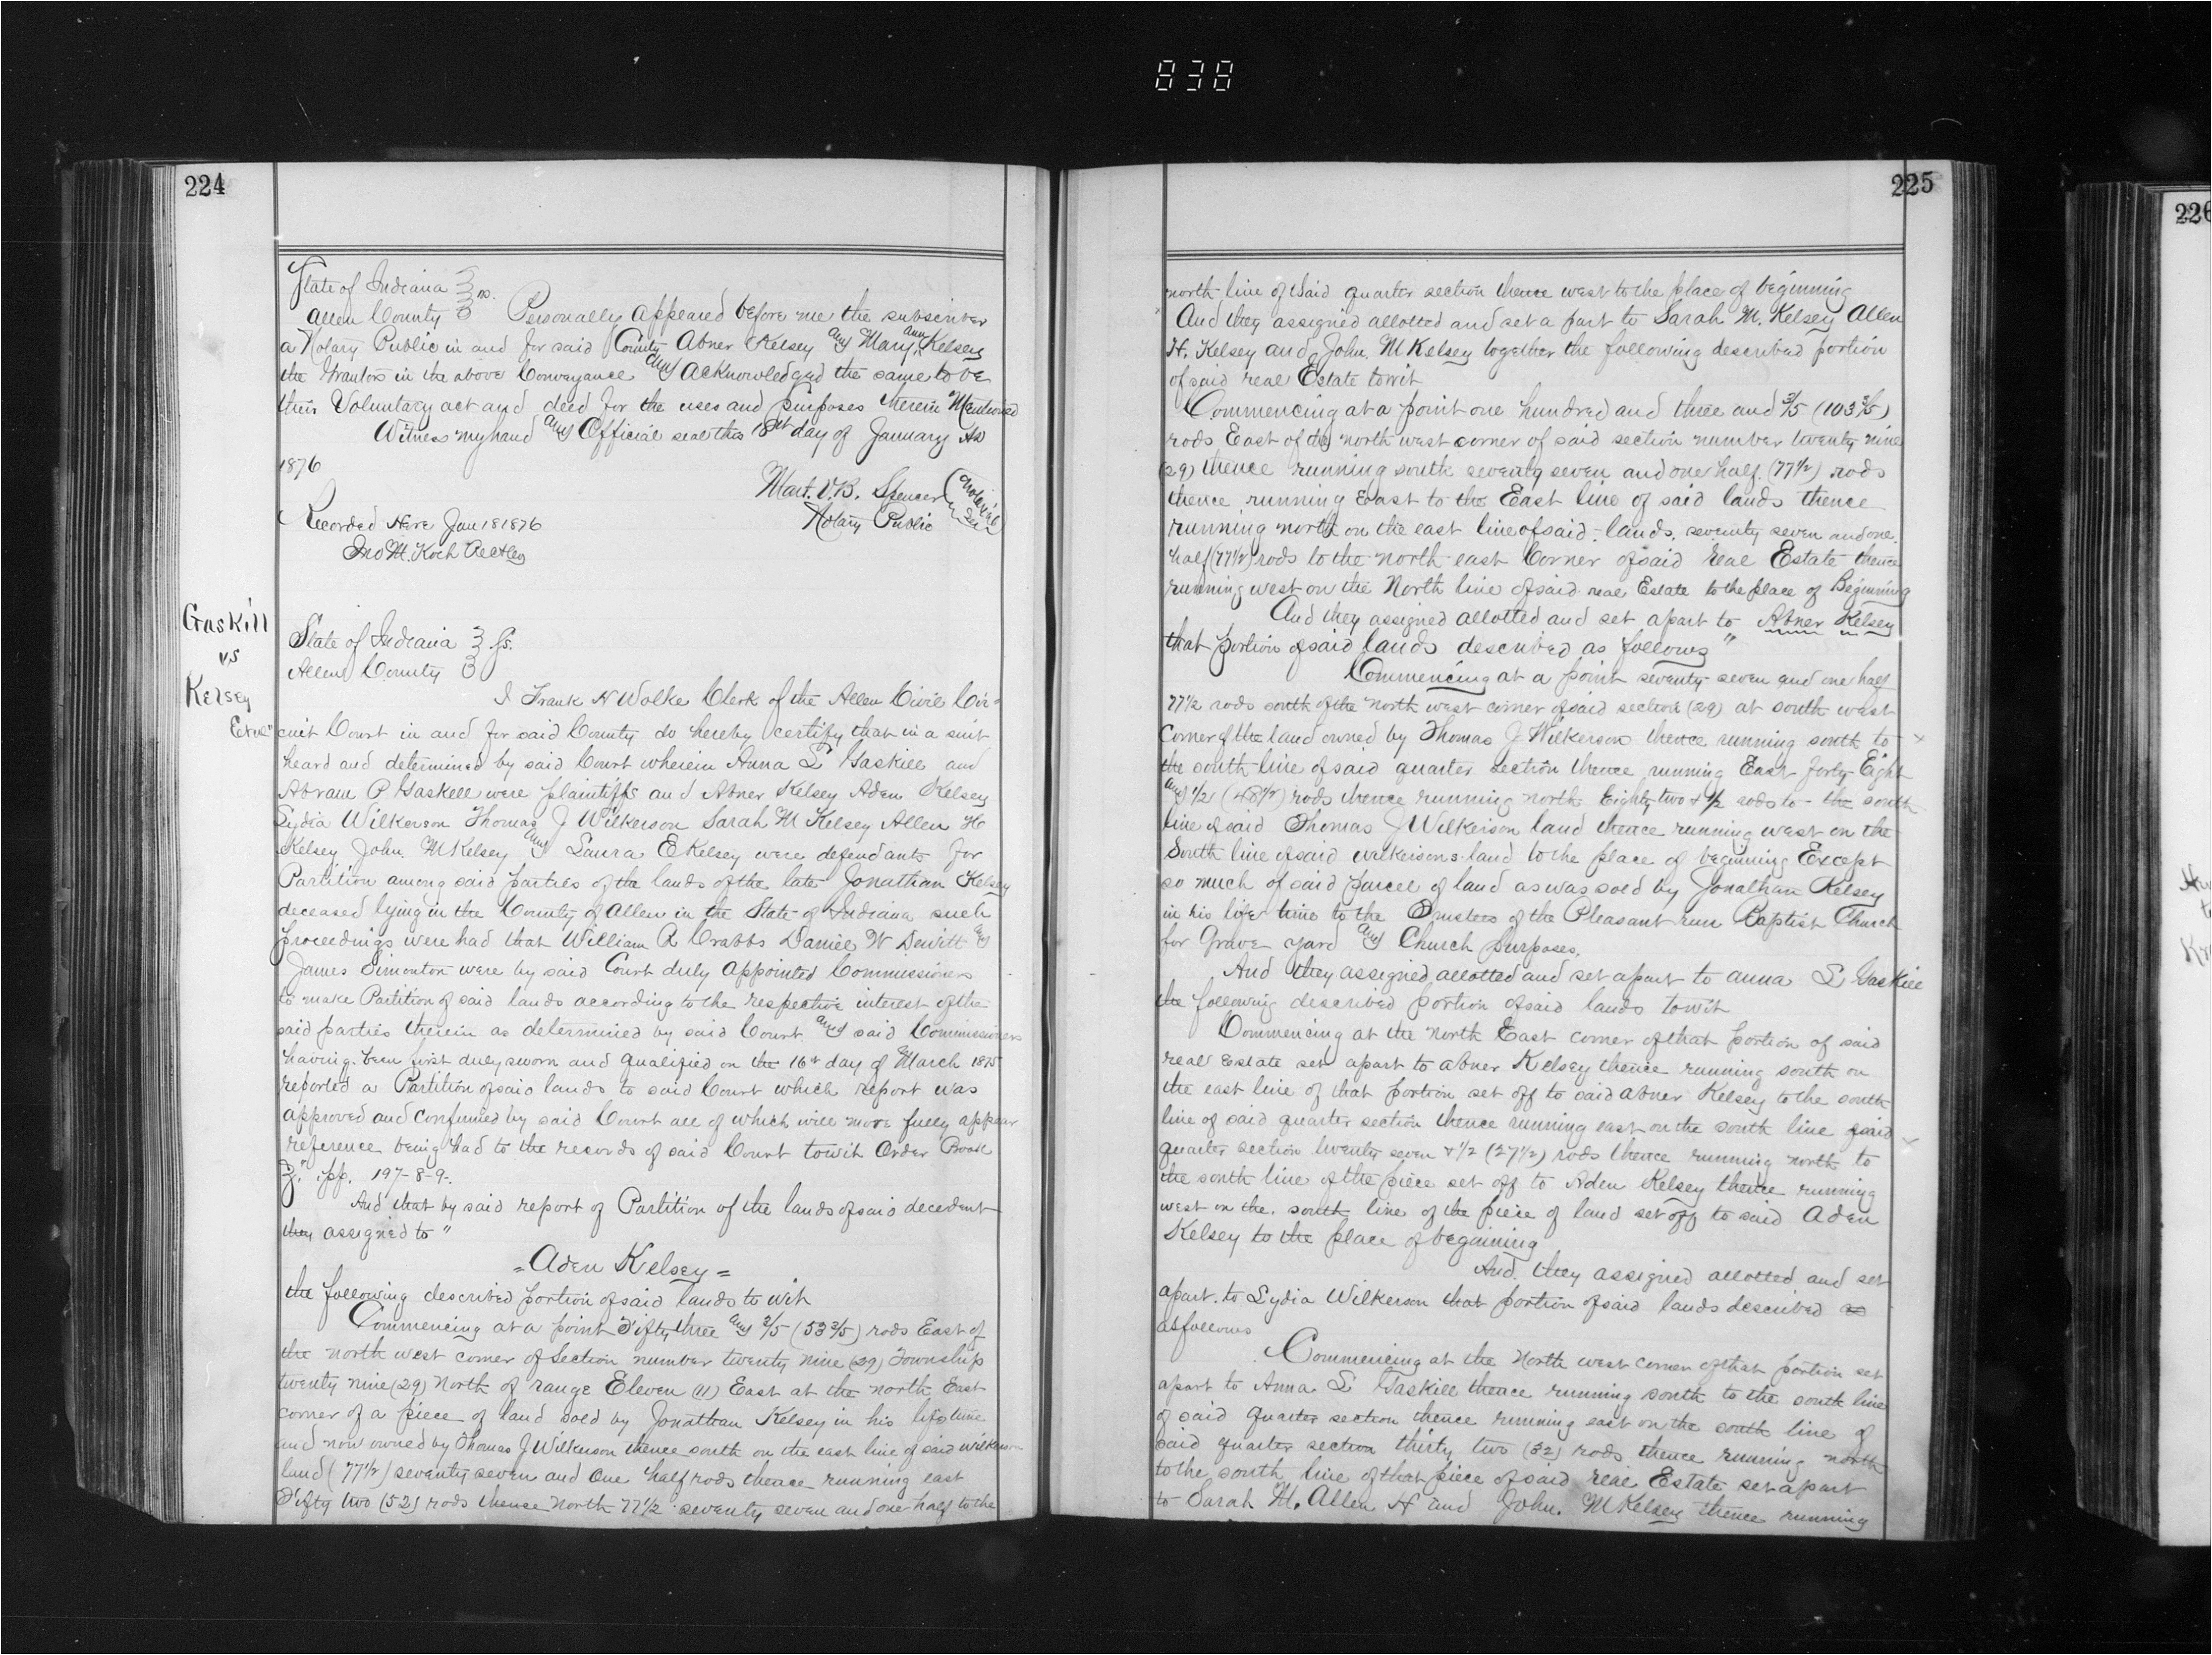 838
224
State of Indiana
Allen County ss. Personally appeared before me the subscriber
a Notary Public in and for said County Abner Kelsey and Mary Ann Kelsey
the Grantors in the above Conveyance and acknowledged the same to be
their Voluntary act and deed for the uses and purposes therein Mentioned
Witness my hand and Official seal this 18th day of January AD
1876
Mart. V. B. Spencer
Notary Public
Notarial Seal
Recorded Here Jan 18 1876
Jno M. Koch
Gaskill
vs
Kelsey
State of Indiana
Allen County ss.
I Frank H Wolke Clerk of the Allen Civil Cir-
cuit Court in and for said County do hereby certify that in a suit
heard and determined by said Court wherein Anna L Gaskill and
Abram P Gaskill were plaintiffs and Abner Kelsey Aden Kelsey
Lydia Wilkerson Thomas J Wilkerson Sarah M Kelsey Allen H
Kelsey John. M Kelsey and Laura E Kelsey were defendants for
Partition among said parties of the lands of the late Jonathan Kelsey
deceased lying in the County of Allen in the State of Indiana such
proceedings were had that William R Crabbs Daniel W Dewitt and
James Simonton were by said Court duly appointed Commissioners
to make Partition of said lands according to the respective interest of the
said parties therein as determined by said Court and said Commissioners
having been first duly sworn and qualified on the 16th day of March 1875
reported a Partition of said lands to said Court which report was
approved and confirmed by said Court all of which will more fully appear
reference being had to the records of said Court towit Order Book
pp. 197-8-9-.
And that by said report of Partition of the lands of said decedent
they assigned to "
= Aden Kelsey =
the following described portion of said lands to wit
Commencing at a point Fifty three and 3/5 (53 3/5) rods East of
the north west corner of Section number twenty nine (29) Township
twenty nine (29) North of range Eleven (11) East at the north East
corner of a piece of land sold by Jonathan Kelsey in his life time
and now owned by Thomas J Wilkerson thence south on the east line of said Wilkerson
land (77 1/2) seventy seven and one half rods thence running east
Fifty two (52) rods thense North 77 1/2 seventy seven and one half to the
225
north line of said quarter section thence west to the place of beginning
And they assigned allotted and set a part to Sarah M. Kelsey Allen
H. Kelsey and John. M Kelsey together the following described portion
of said real Estate towit
Commencing at a point one hundred and three and 3/5 (103 3/5)
rods East of the north west corner of said section number twenty nine
(29) thence running south seventy seven and one half (77 1/2) rods
thence running East to the East line of said lands thence
running north on the east line of said lands, seventy seven and one
half (77 1/2) rods to the north east Corner of said real Estate thence
running west on the North line of said real Estate to the place of Beginning
And they assigned allotted and set apart to Abner Kelsey
that portion of said lands described as follows "
Commencing at a point seventy seven and one half
77 1/2 rods south of the north west corner of said section (29) at south west
Corner of the land owned by Thomas J Wilkerson thence running south to
the south line of said quarter section thence running East forty Eight
and 1/2 (48 1/2) rods thence running north Eighty two + 1/2 rods to the south
line of said Thomas J Wilkerson land thence running west on the
South line of said wilkersons land to the place of beginning Except
so much of said parcel of land as was sold by Jonathan Kelsey
in his life time to the Trustees of the Pleasant run Baptist Church
for Grave yard and Church purposes.
And they assigned allotted and set apart to anna L Gaskill
the following described portion of said lands towit
Commencing at the North East corner of that portion of said
real Estate set apart to Abner Kelsey thence running south on
the east line of that portion set off to said Abner Kelsey to the south
line of said quarter section thence running east on the south line of said
quarter section twenty seven + 1/2 (27 1/2) rods thence running north to
the south line of the piece set off to Aden Kelsey thence running
west on the south line of the piece of land set off to said Aden
Kelsey to the place of beginning
And they assigned allotted and set
apart to Lydia Wilkerson that portion of said lands described as
as follows
Commencing at the North west corner of that portion set
apart to Anna L Gaskill thence running south to the south line
of said quarter section thence running east on the south line of
said quarter section thirty two (32) rods thence running north
to the south line of that piece of said real Estate set apart
to Sarah M. Allen H and John. M Kelsey thence running
226